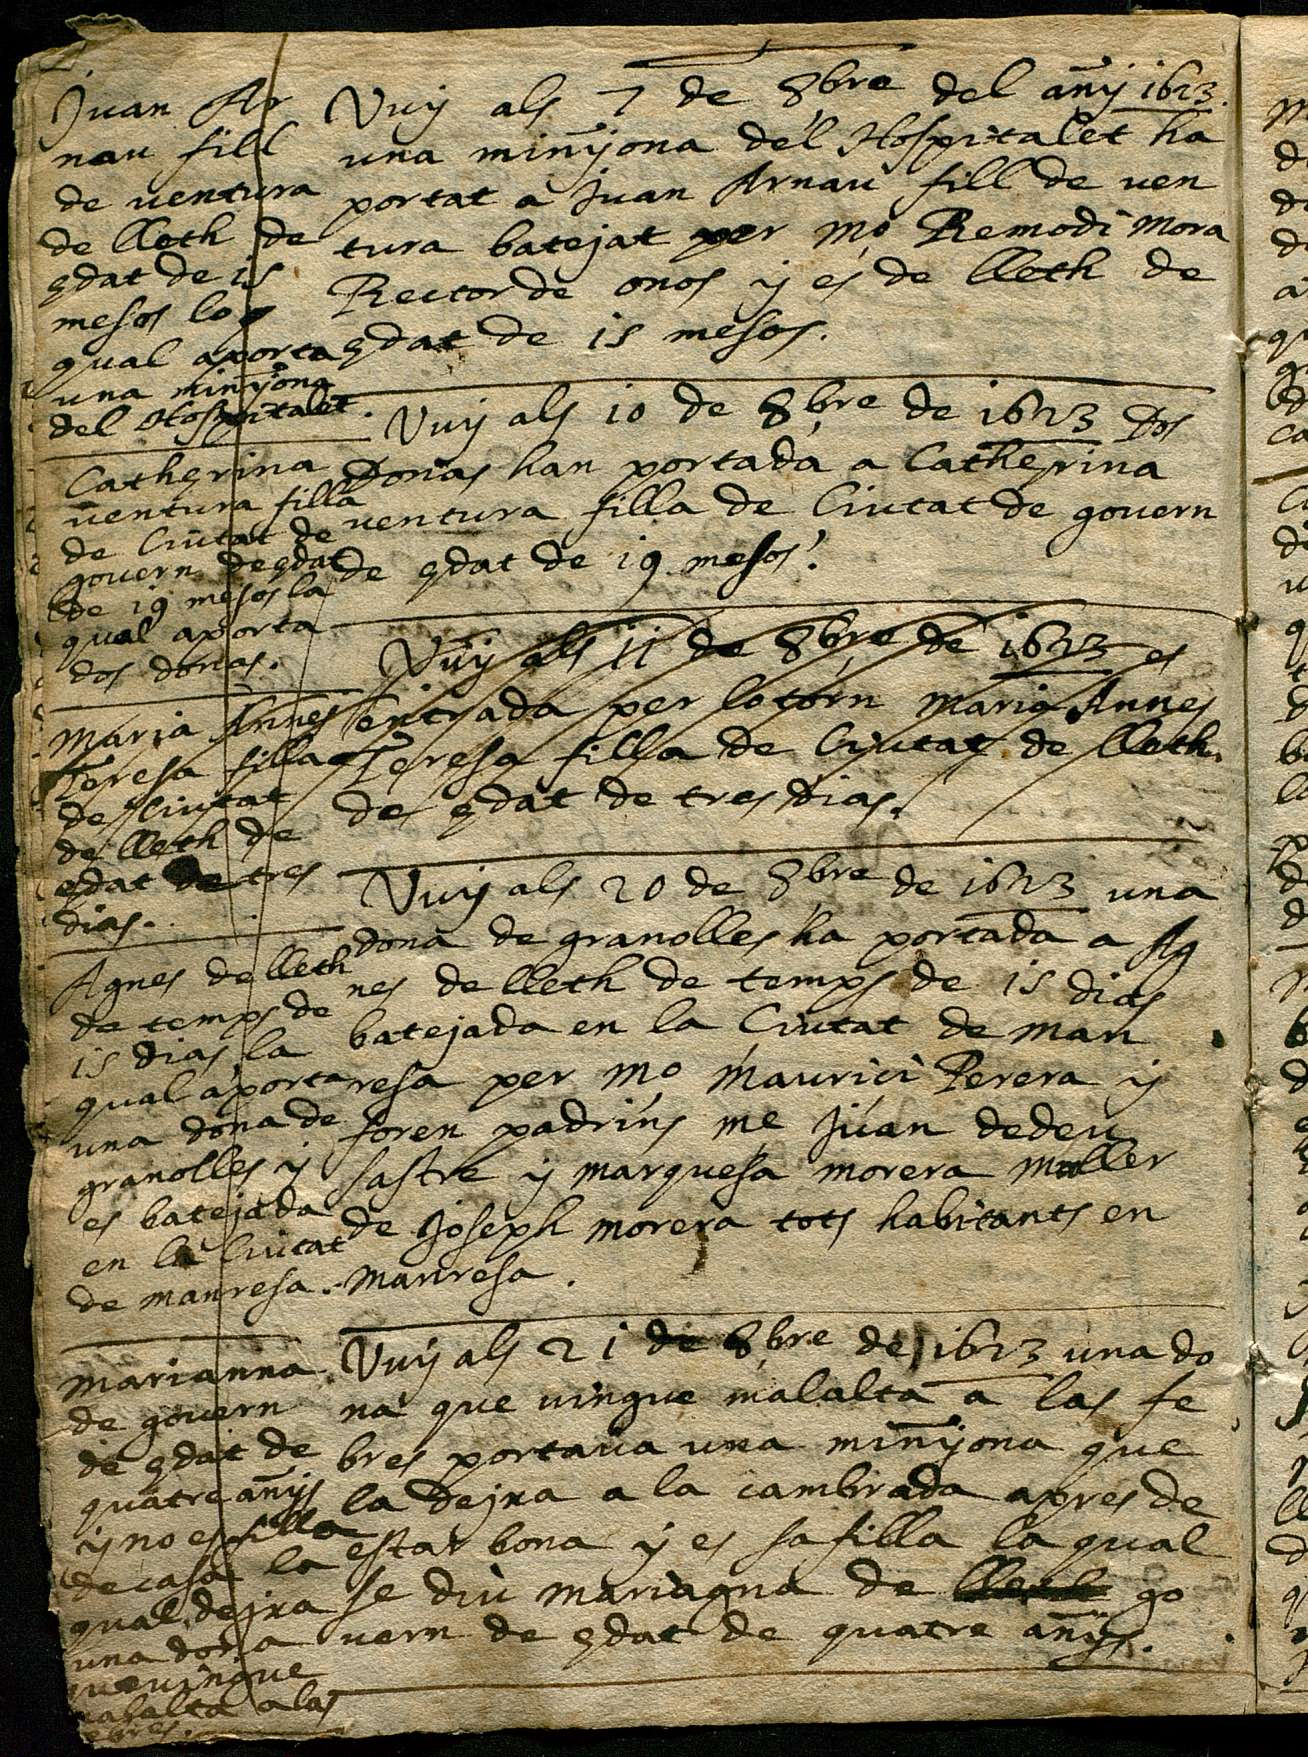 Juan Ar
nau fill
de ventura
de lleth de
edat de 15
mesos lo
qual aporta
una miñyona
del Hospitalet.
Vuy als 7 de 8bre del añy 1623.
una miñyona del Hospitalet ha
portat a Juan Arnau fill de ven
tura batejat per mo Remodi Mora
Rector de onos y es de lleth de
edat de 15 mesos.
Catherina
ventura filla
de Ciutat de
govern de edat
de 19 mesos la
qual aporta
dos donas.
Vuy als 10 de 8bre de 1623 Dos
Donas han portada a Catherina
ventura filla de Ciutat de govern
de edat de 19 mesos.
Maria Annes
Teresa filla
de Ciutat
de lleth de
edat de tres
dias.
Vuy als 11 de 8bre de 1623 es
entrada per lo torn Maria Annes
Teresa filla de Ciutat de lleth
de edat de tres dias.
Agnes de lleth
de temps de
15 dias la
qual aporta
una dona de
granolles y
es batejada
en la Ciutat
de manresa.
Vuy als 20 de 8bre de 1623 una
dona de granolles ha portada a Ag
nes de lleth de temps de 15 dias
batejada en la Ciutat de Man
resa per Mo Maurici Perera y
foren padrins me Juan dedeu
sastre y marquesa morera muller
de Joseph morera tots habitants en
Manresa.
Marianna
de govern
de edat de
quatre añys
y no es filla
de casa la
qual dejxa
una dona
que vingue
malalta a las
febres.
Vuy als 21 de 8bre de 1623 una do
na que vingue malalta a las fe
bres portava una miñyona que
la dejxa a la cambrada apres de
estar bona y es sa filla la qual
se diu Mariagna de go
vern de edat de quatre añys.